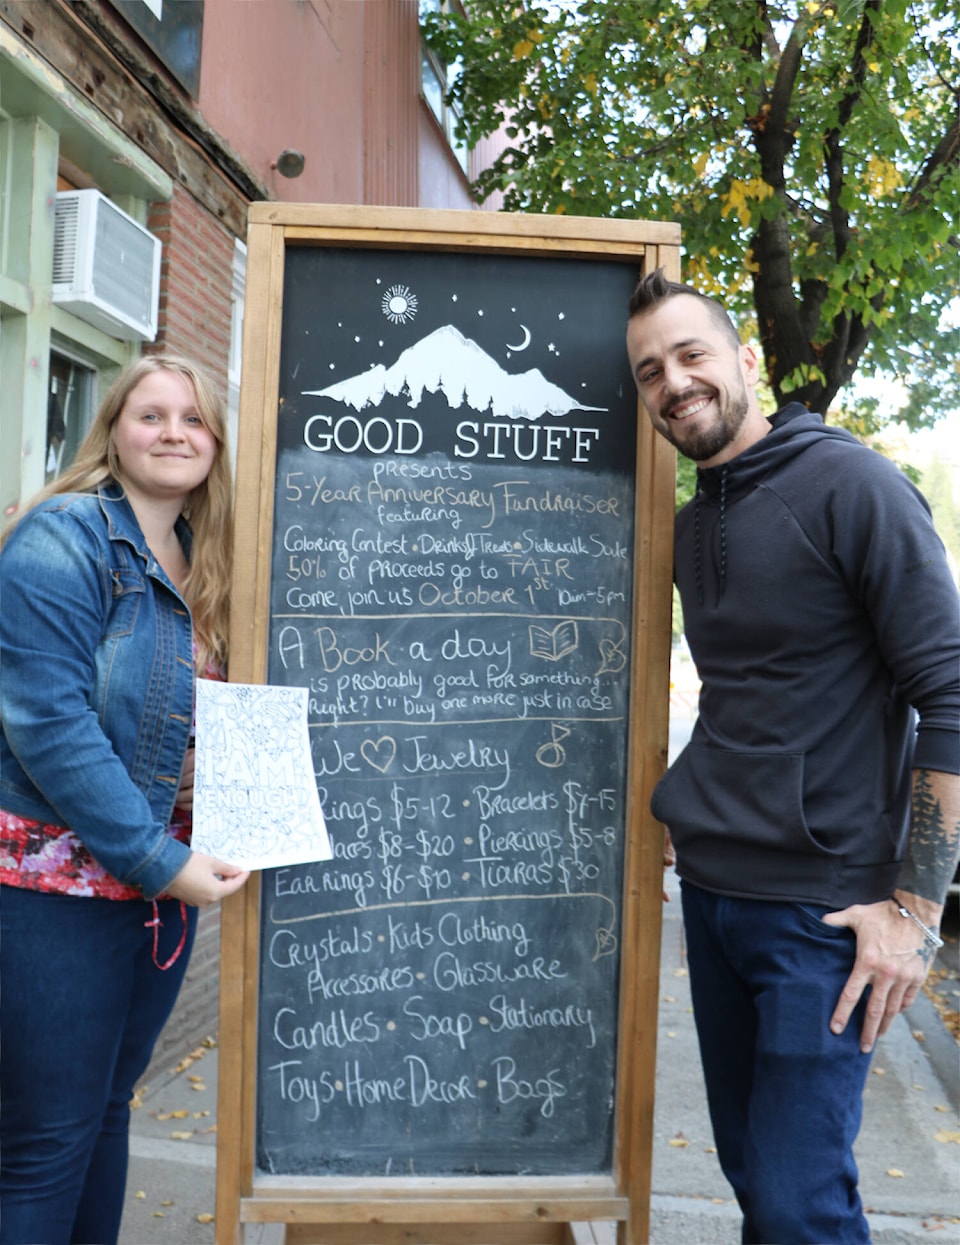 GOOD STUFF
PRESENTS
5-Year Anniversary Fundraiser
featuring
Coloring Contest • Drinks & Treats • Sidewalk Sale
50% of proceeds go to FAIR
Come, join us October 1st 10am-5pm
A Book a day
is probably good for something...
Right? I'll buy one more just in case
We ♡ Jewelry
Rings $5-12 • Bracelets $7-15
$8-$20 • Piercings $5-8
Earrings $6-$10 • Tiaras $30
Crystals • Kids Clothing
Accessoires • Glassware
Candles • Soap • Stationary
Toys • Home Decor • Bags
I AM
ENOUGH